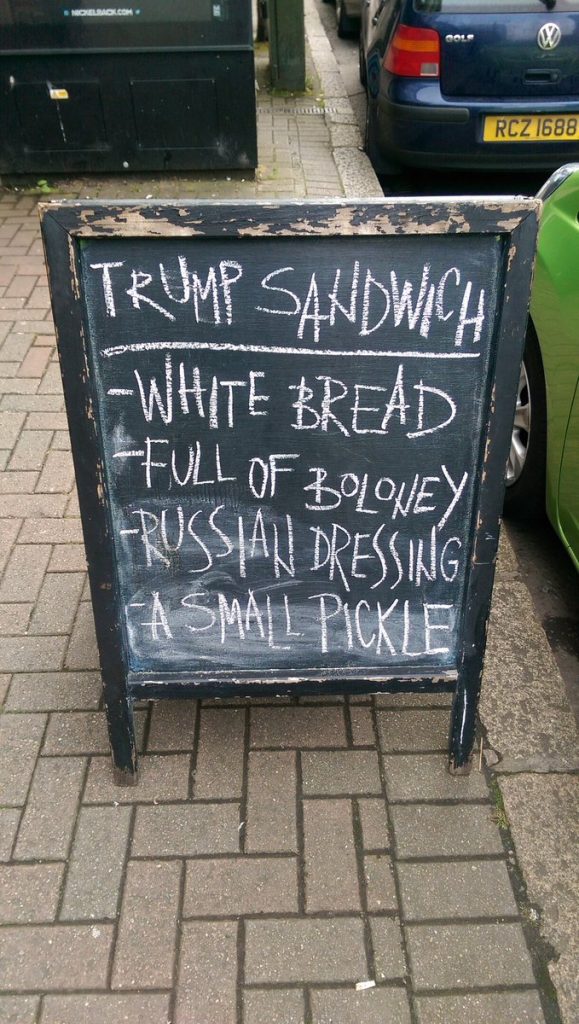 NICKELBACK.COM
GOLF
RCZ 1688
TRUMP SANDWICH
-WHITE BREAD
-FULL OF BOLONEY
-RUSSIAN DRESSING
-A SMALL PICKLE